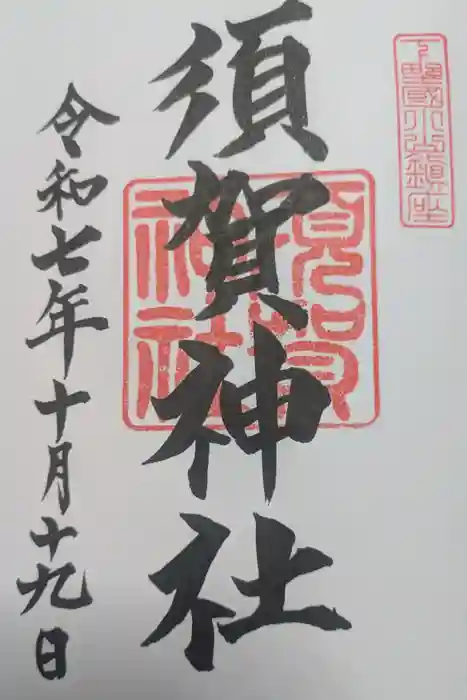 下野國小山鎮坐
須賀神社
須賀神社
令和七年十月十九日